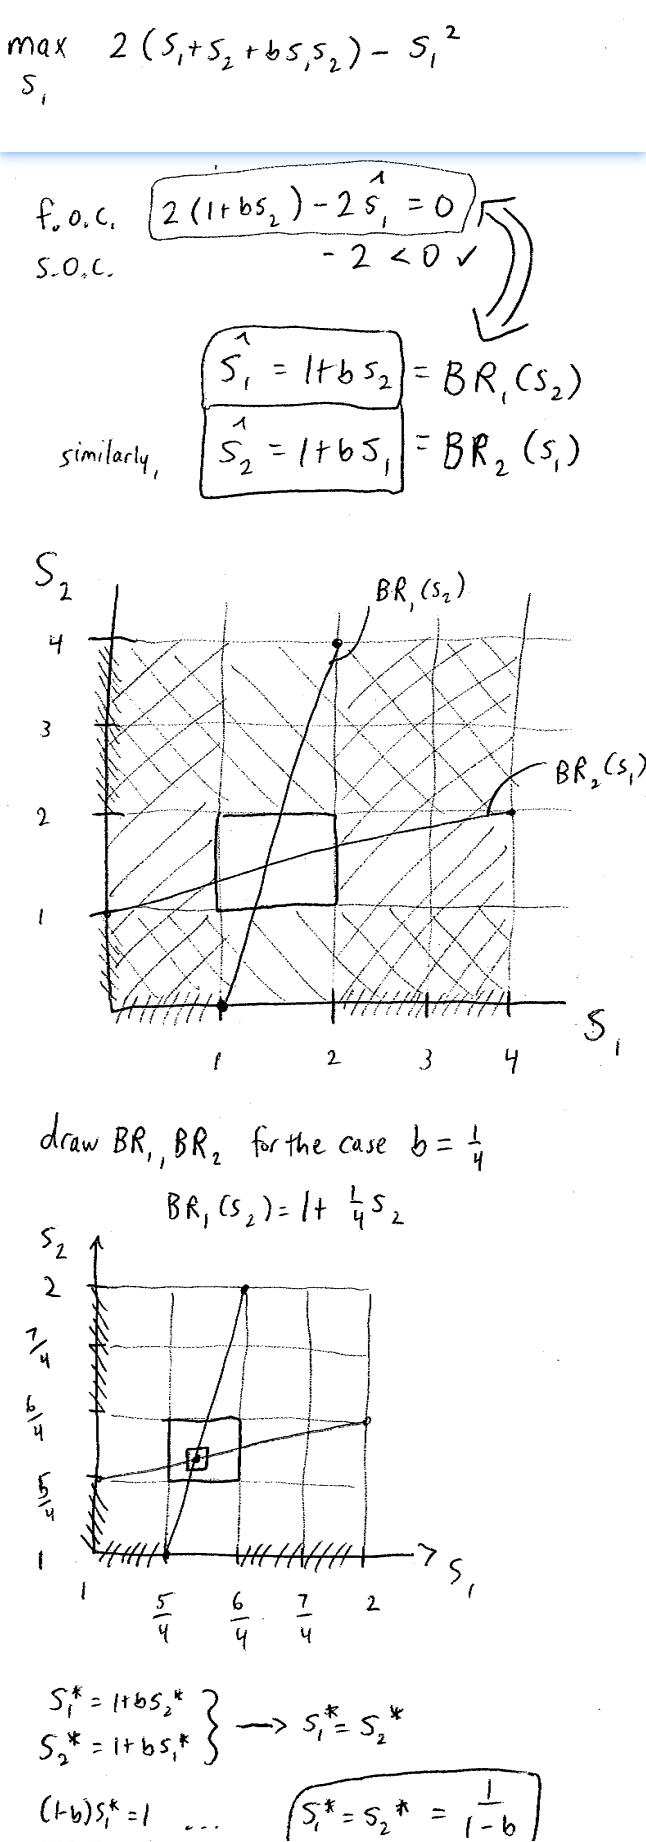 max 2(S₁+S₂+bS₁S₂)-S₁²
S₁
f.o.c. 2(1+bS₂)-2Ŝ₁=0
S.O.C. -2<0 ✓
Ŝ₁=1+bS₂=BR₁(S₂)
similarly, Ŝ₂=1+bS₁=BR₂(S₁)
S₂
BR₁(S₂)
4
3
BR₂(S₁)
2
1
S₁
1 2 3 4
draw BR₁, BR₂ for the case b=1/4
BR₁(S₂)=1+1/4 S₂
S₂
2
7/4
6/4
5/4
1
S₁
1 5/4 6/4 7/4 2
S₁*=1+bS₂*
S₂*=1+bS₁* → S₁*=S₂*
(1-b)S₁*=1 ... S₁*=S₂*=1/(1-b)